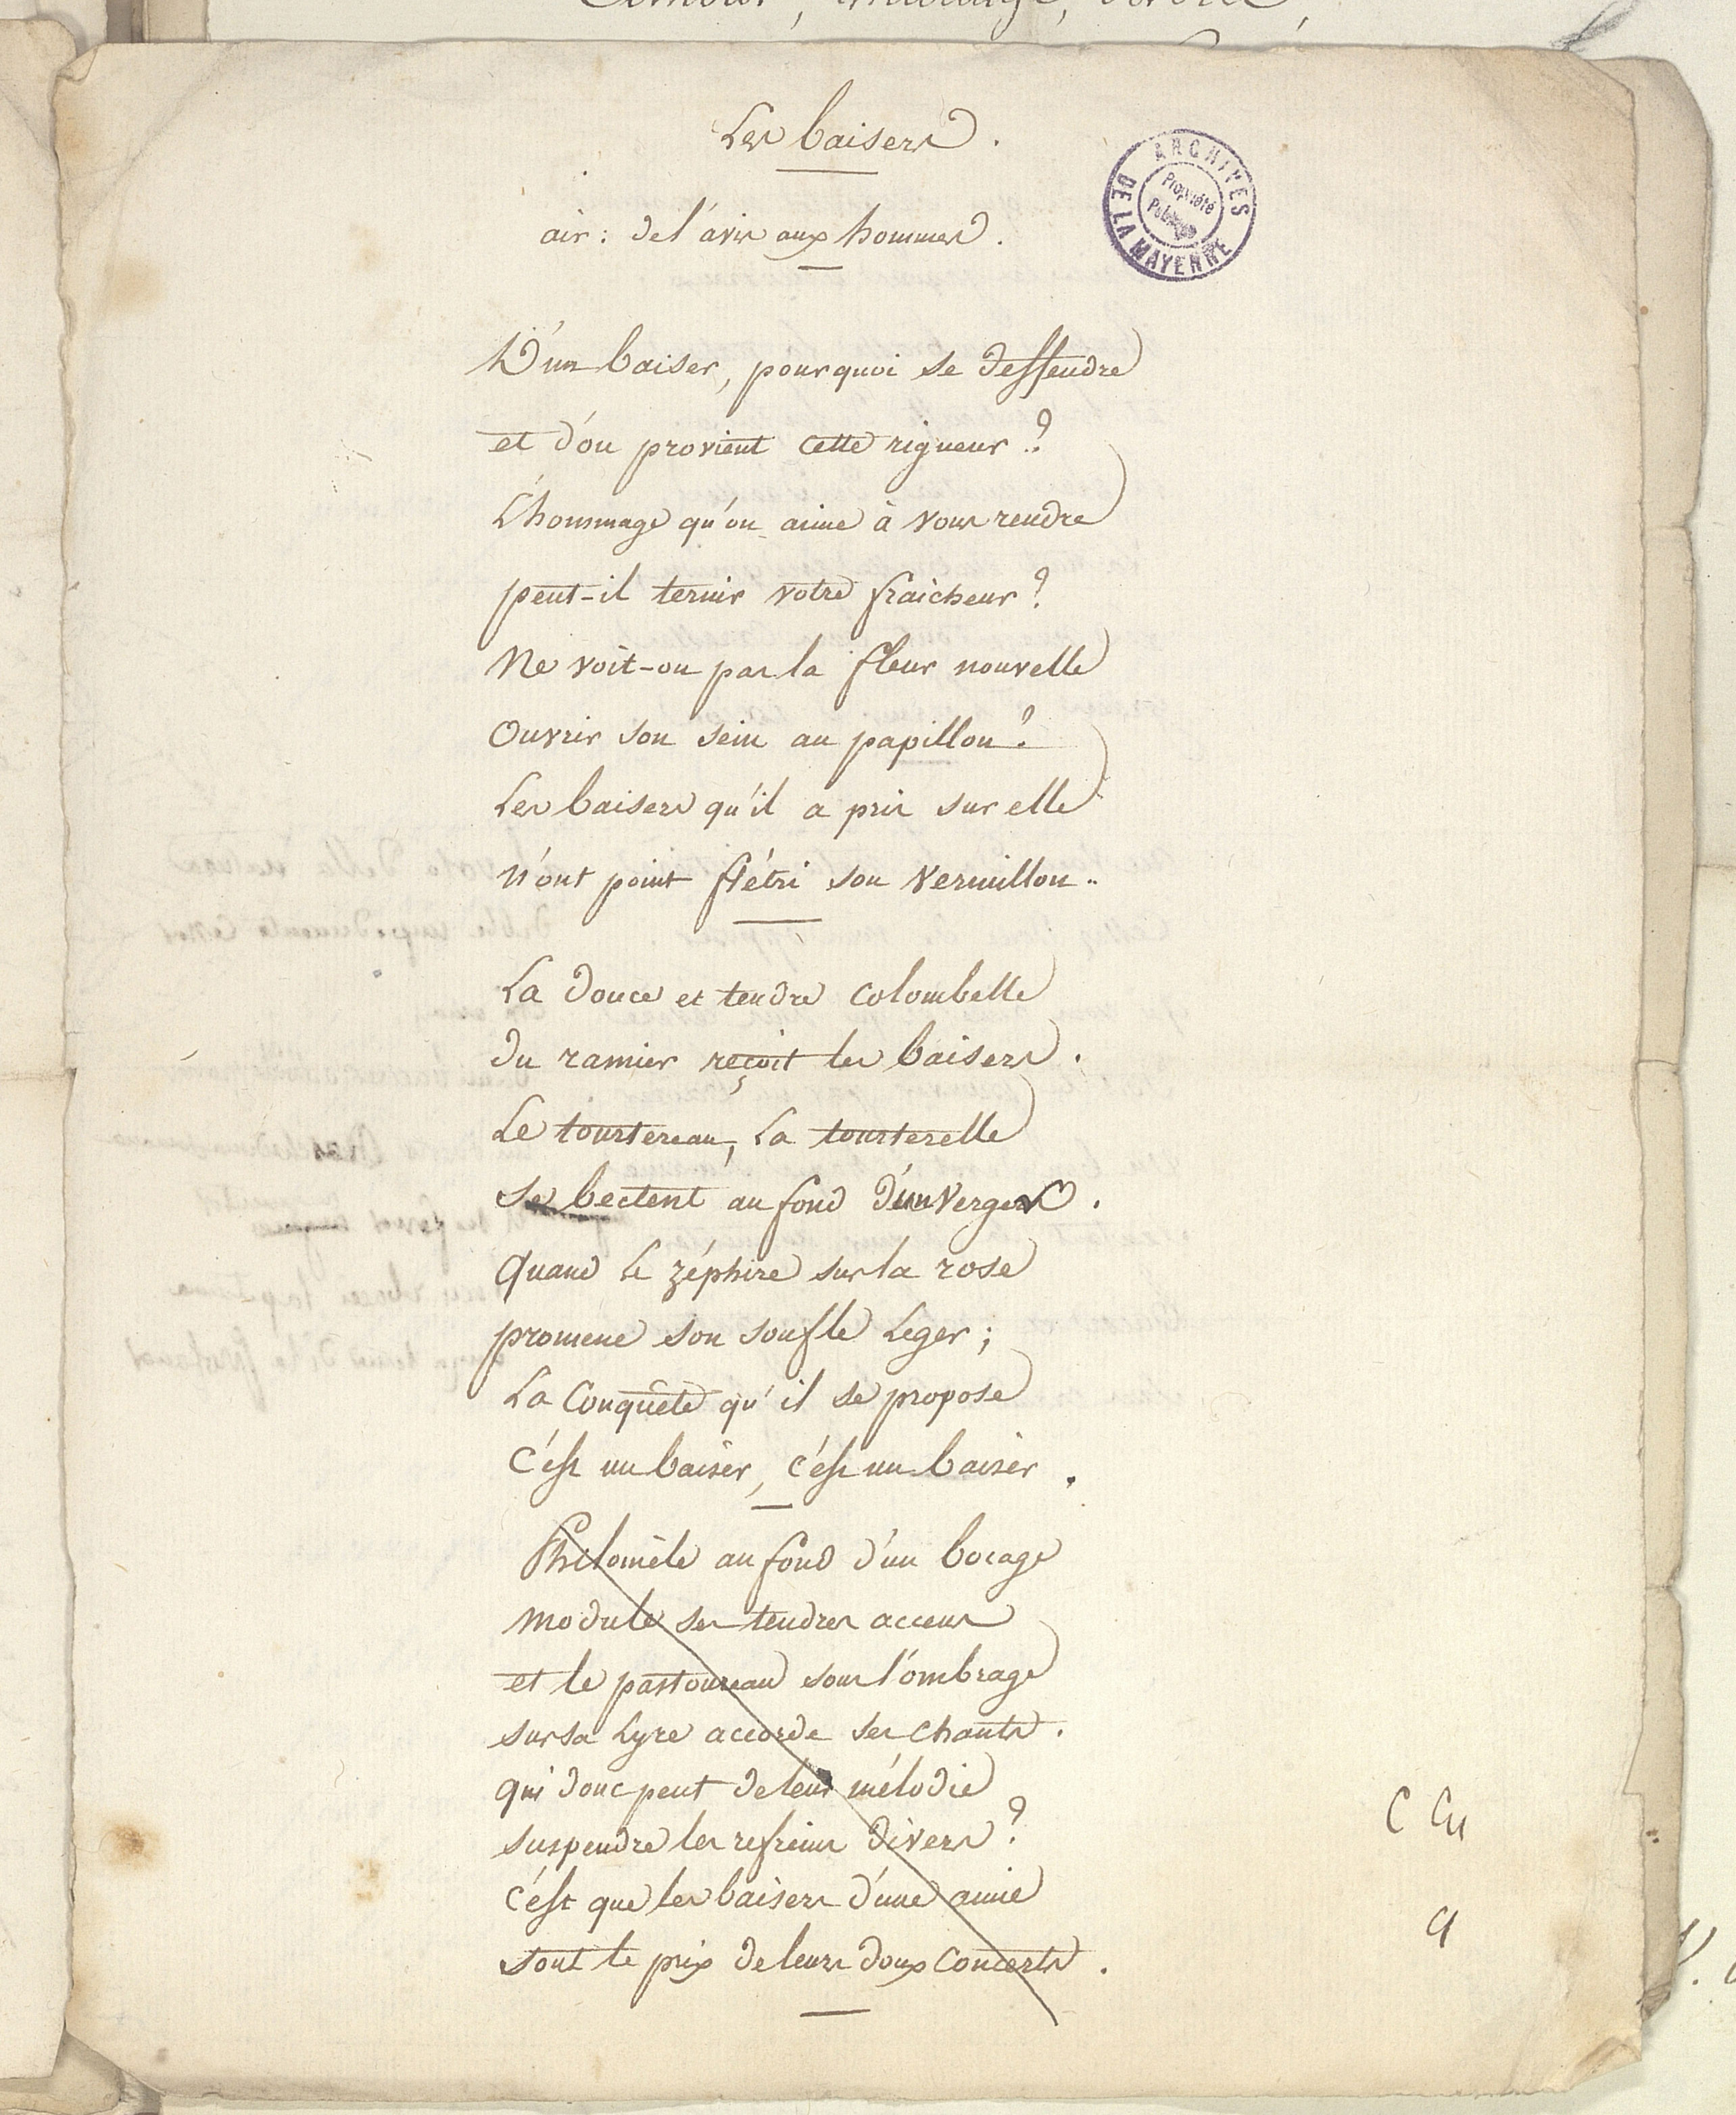 Les baisers.
ARCHIVES DE LA MAYENNE
Propriété
air: de l'avis aux hommes.
D'un baiser, pourquoi se deffendre
et d'ou provient cette rigueur?
L'hommage qu'on aime à vous rendre
peut-il ternir votre fraicheur?
Ne voit-on pas la fleur nouvelle
Ouvrir son sein au papillon?
Les baisers qu'il a pris sur elle
n'ont point flétri son vermillon..
La douce et tendre colombelle
du ramier reçoit les baisers.
Le tourtereau, la tourterelle
se bectent au fond d'un verger.
quand le zéphire sur la rose
promene son soufle leger;
La conquête qu'il se propose
C'est un baiser, c'est un baiser.
Philomèle au fond d'un bocage
module ses tendres accens
et le pastoureau sous l'ombrage
sur sa lyre accorde ses chants.
qui donc peut de leur mélodie
suspendre les refreins divers?
c'est que les baisers d'une amie
sont le prix de leurs doux concerts.